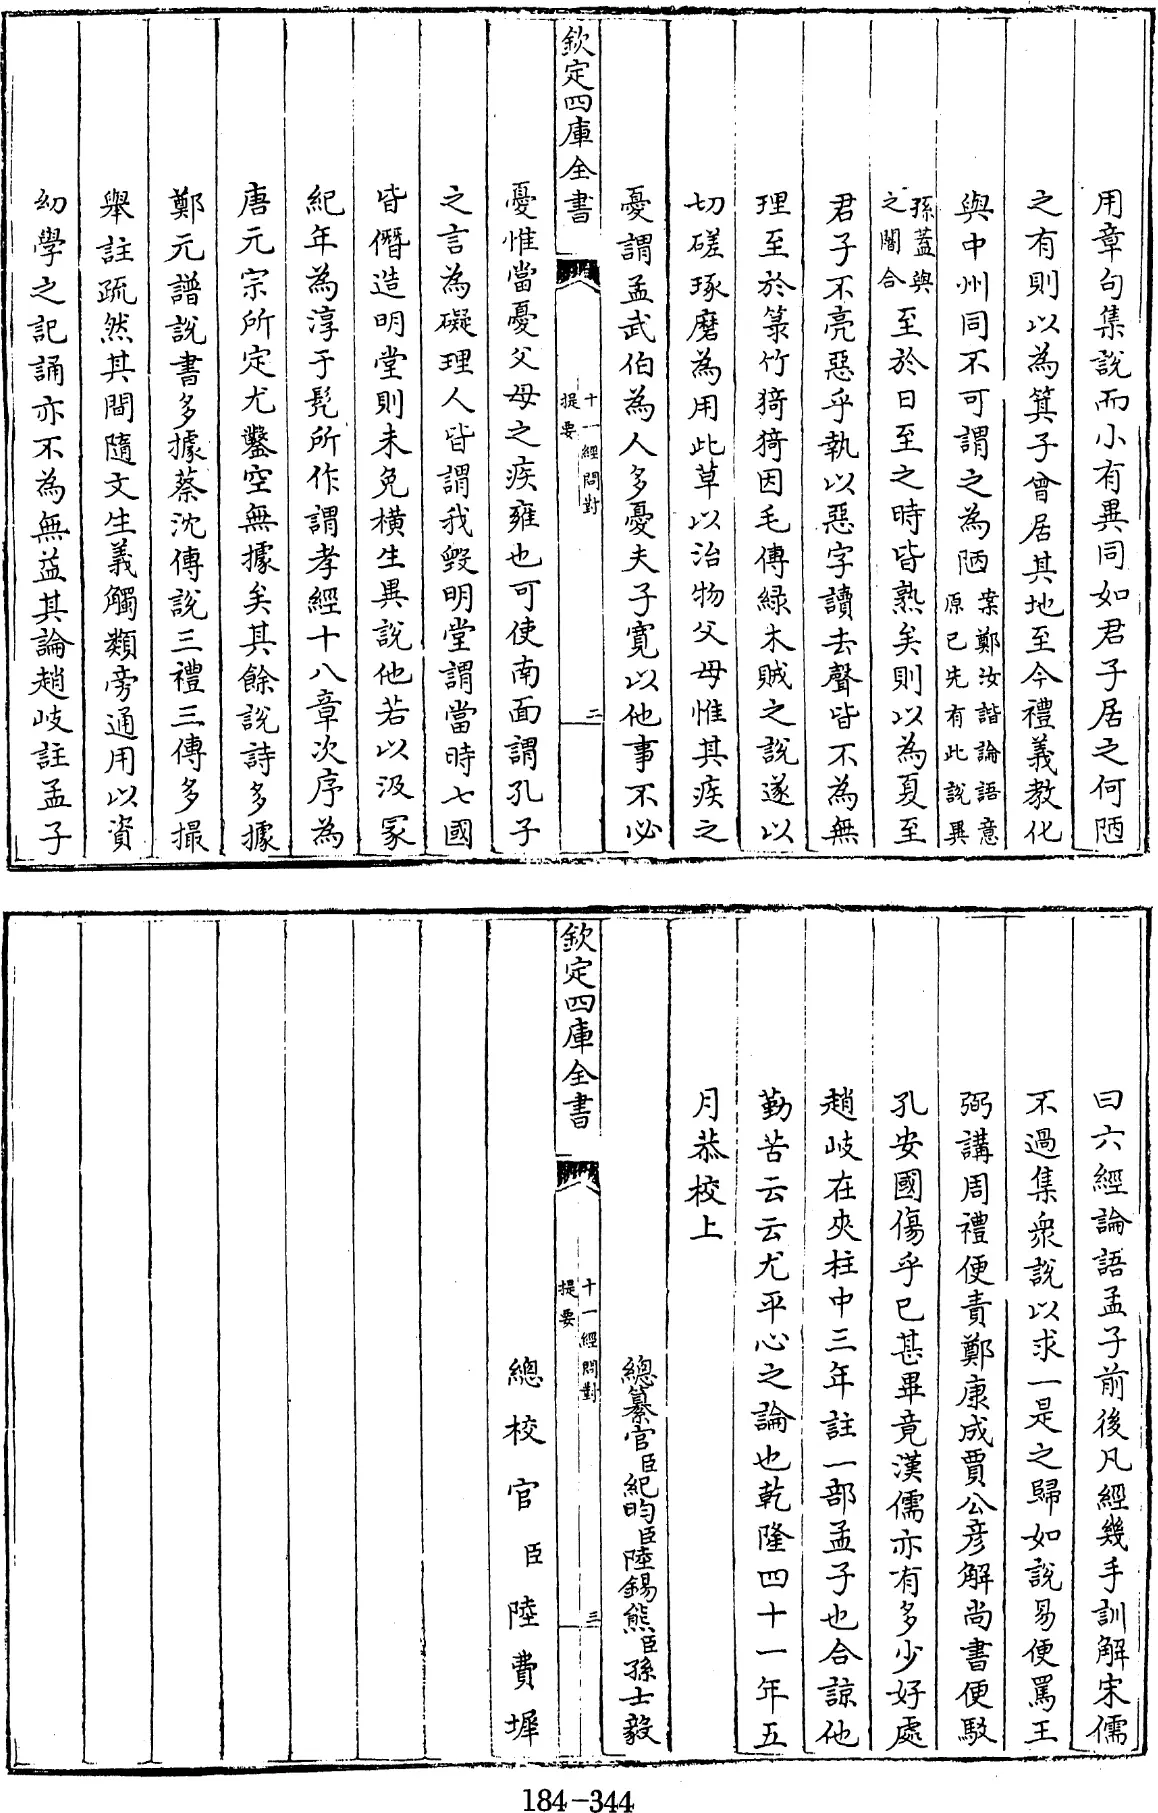 用章句集說而小有異同如君子居之何陋
之有則以為箕子曾居其地至今禮義教化
與中州同不可謂之為陋案鄭汝諧論語意原已先有此說異
孫蓋與之闇合至於日至之時皆熟矣則以為夏至
君子不亮惡乎執以惡字讀去聲皆不為無
理至於菉竹猗猗因毛傳綠木賊之說遂以
切磋琢磨為用此草以治物父母惟其疾之
憂謂孟武伯為人多憂夫子寬以他事不必
欽定四庫全書
十一經問對
提要
二
憂惟當憂父母之疾雍也可使南面謂孔子
之言為礙理人皆謂我毀明堂謂當時七國
皆僭造明堂則未免橫生異說他若以汲冢
紀年為淳于髡所作謂孝經十八章次序為
唐元宗所定尤鑿空無據矣其餘說詩多據
鄭元譜說書多據蔡沈傳說三禮三傳多撮
舉註疏然其間隨文生義觸類旁通用以資
幼學之記誦亦不為無益其論趙岐註孟子
曰六經論語孟子前後凡經幾手訓解宋儒
不過集衆說以求一是之歸如說易便罵王
弼講周禮便責鄭康成賈公彥解尚書便駁
孔安國傷乎已甚畢竟漢儒亦有多少好處
趙岐在夾柱中三年註一部孟子也合諒他
勤苦云云尤平心之論也乾隆四十一年五
月恭校上
總纂官臣紀昀臣陸錫熊臣孫士毅
欽定四庫全書
十一經問對
提要
三
總校官臣陸費墀
184-344